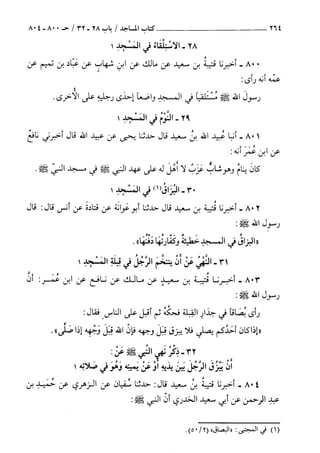 ٢٦٤ كتاب المساجد / باب ٢٨ - ٣٢ / حـ ٨٠٠ - ٨٠٤
٢٨ - الاسْتِلْقَاءُ في المَسْجِدِ ١
٨٠٠ - أخبرنا قتيبةُ بن سعيد عن مالك عن ابنِ شهابٍ عن عَبَّاد بن تميم عن
عمّه أنه رأى:
رسولَ الله ﷺ مُسْتَلقياً في المسجدِ واضعاً إحْدَى رجليهِ على الأخرى.
٢٩ - النَّوْمُ في المَسْجِدِ ١
٨٠١ - أنبا عُبيد الله بنُ سعيد قال حدثنا يحيى عن عبيد الله قال أخبرني نافعٌ
عن ابن عُمَرَ أنه:
كانَ ينامُ وهو شابٌّ عَزَبٌ لا أهْلَ له على عهدِ النبي ﷺ في مسجد النبيّ ﷺ.
٣٠ - البُزَاقُ(١) في المَسْجِدِ ١
٨٠٢ - أخبرنا قُتيبة بن سعيد قال حدثنا أبو عَوانة عن قتادةَ عن أنس قال: قال
رسولُ الله ﷺ:
«البزاقُ في المسجدِ خَطيئةٌ وكفّارتُهَا دَفْنُهَا».
٣١ - النَّهْيُ عَنْ أنْ يَتنخَّمَ الرَّجُلُ في قِبْلَةِ المَسْجِدِ ١
٨٠٣ - أخبرنا قتيبة بن سعيدٍ عن مالكٍ عن نافع عن ابن عُمَر: أنّ
رسولَ الله ﷺ:
رأى بُصَاقاً في جدَارِ القِبلة فحكَّهُ ثم أقبل على الناس فقال:
«إذا كان أحَدُكم يصلي فلا يبزق قِبَلَ وجهه فإنّ الله قِبَلَ وَجْهِه إذا صَلَّى».
٣٢ - ذِكْرُ نَهْيِ النَّبِي ﷺ عَنْ:
أنْ يَبْزُقَ الرَّجُلُ بَيْنَ يدَيهِ أوْ عَنْ يَمينهِ وَهُوَ في صَلاتِه ١
٨٠٤ - أخبرنا قتيبةُ بنُ سعيد قال: حدثنا سُفيان عن الزهري عن حُمَيدِ بن
عبدِ الرحمن عن أبي سعيد الخدري أنّ النبي ﷺ:
(١) في المجتبى: «البصاق» (٥٠/٢).